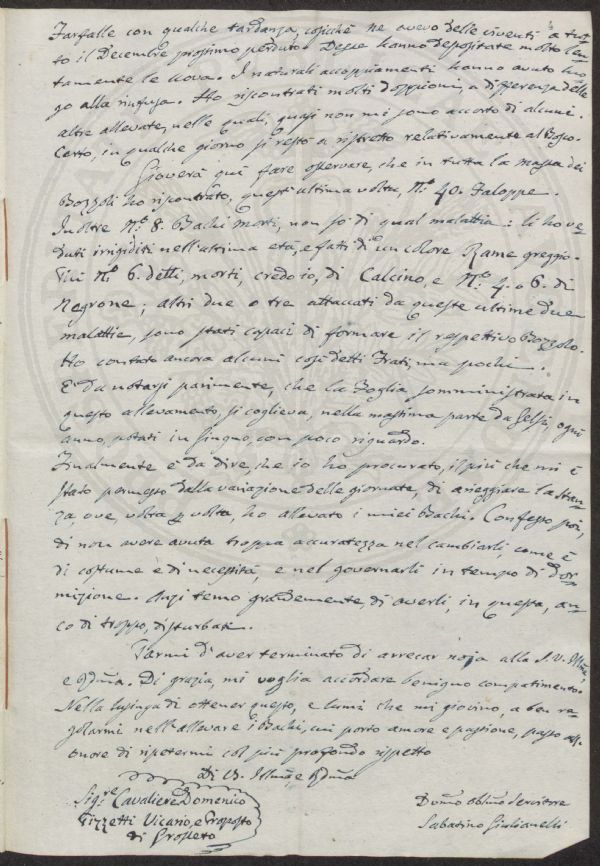 Farfalle con qualche tardanza, cosichè ne avevo delle viventi a tut-
to il Decembre prossimo perduto. Desse hanno depositate molto len-
tamente le Uova. I naturali accoppiamenti hanno avuto luo-
go alla rinfusa. Ho riscontrati molti doppioni, a differenza delle
altre allevate, nelle quali, quasi non mi sono accorto di alcuni.
Certo, in qualche giorno si restò a ristretto relativamente al Bosco.
Gioverà qui fare osservare, che in tutta la massa dei
Bozzoli ho riscontrato, quest'ultima volta, N.° 40. Faloppe.
Inoltre N.° 8. Bachi morti, non so di qual malattia: li ho ve-
duti irrigiditi nell'ultima età, e fati di un colore Rame greggio.
Vidi N.° 6. detti, morti, credo io, di Calcino, e N.° 4. o 6. di
Negrone; altri due o tre attaccati da queste ultime due
malattie, sono stati capaci di formare il respettivo Bozzolo.
Ho contato ancora alcuni così detti Frati, ma pochi.
È da notarsi parimente, che la Foglia somministrata in
questo allevamento, si coglieva, nella massima parte da Gelsi, ogni
anno, potati in Giugno, con poco riguardo.
Finalmente è da dire, che io ho procurato, il più che mi è
stato permesso dalla variazione delle giornate, di arieggiare la stan-
za, ove, volta p volta, ho allevato i miei Bachi. Confesso poi,
di non avere avuta troppa accuratezza nel cambiarli, come è
di costume e di necessità, e nel governarli in tempo di dor-
mizione. Anzi temo grandemente, di averli, in questa, an-
co di troppo, disturbati.
Parmi d'aver terminato di arrecar noja alla S. V. Illma,
e Rdma. Di grazia, mi voglia accordare benigno compatimento.
Nella lusinga di ottener questo, e lumi che mi giovino, a ben re-
golarmi nell'allevare i Bachi, cui porto amore e passione, passo all'
onore di ripetermi col più profondo rispetto
Di V. S. Illma e Rdma
Sig.re Cavaliere Domenico
Pizzetti Vicario, e Proposto
di Grosseto
Devmo Obblmo Servitore
Sabatino Giulianelli